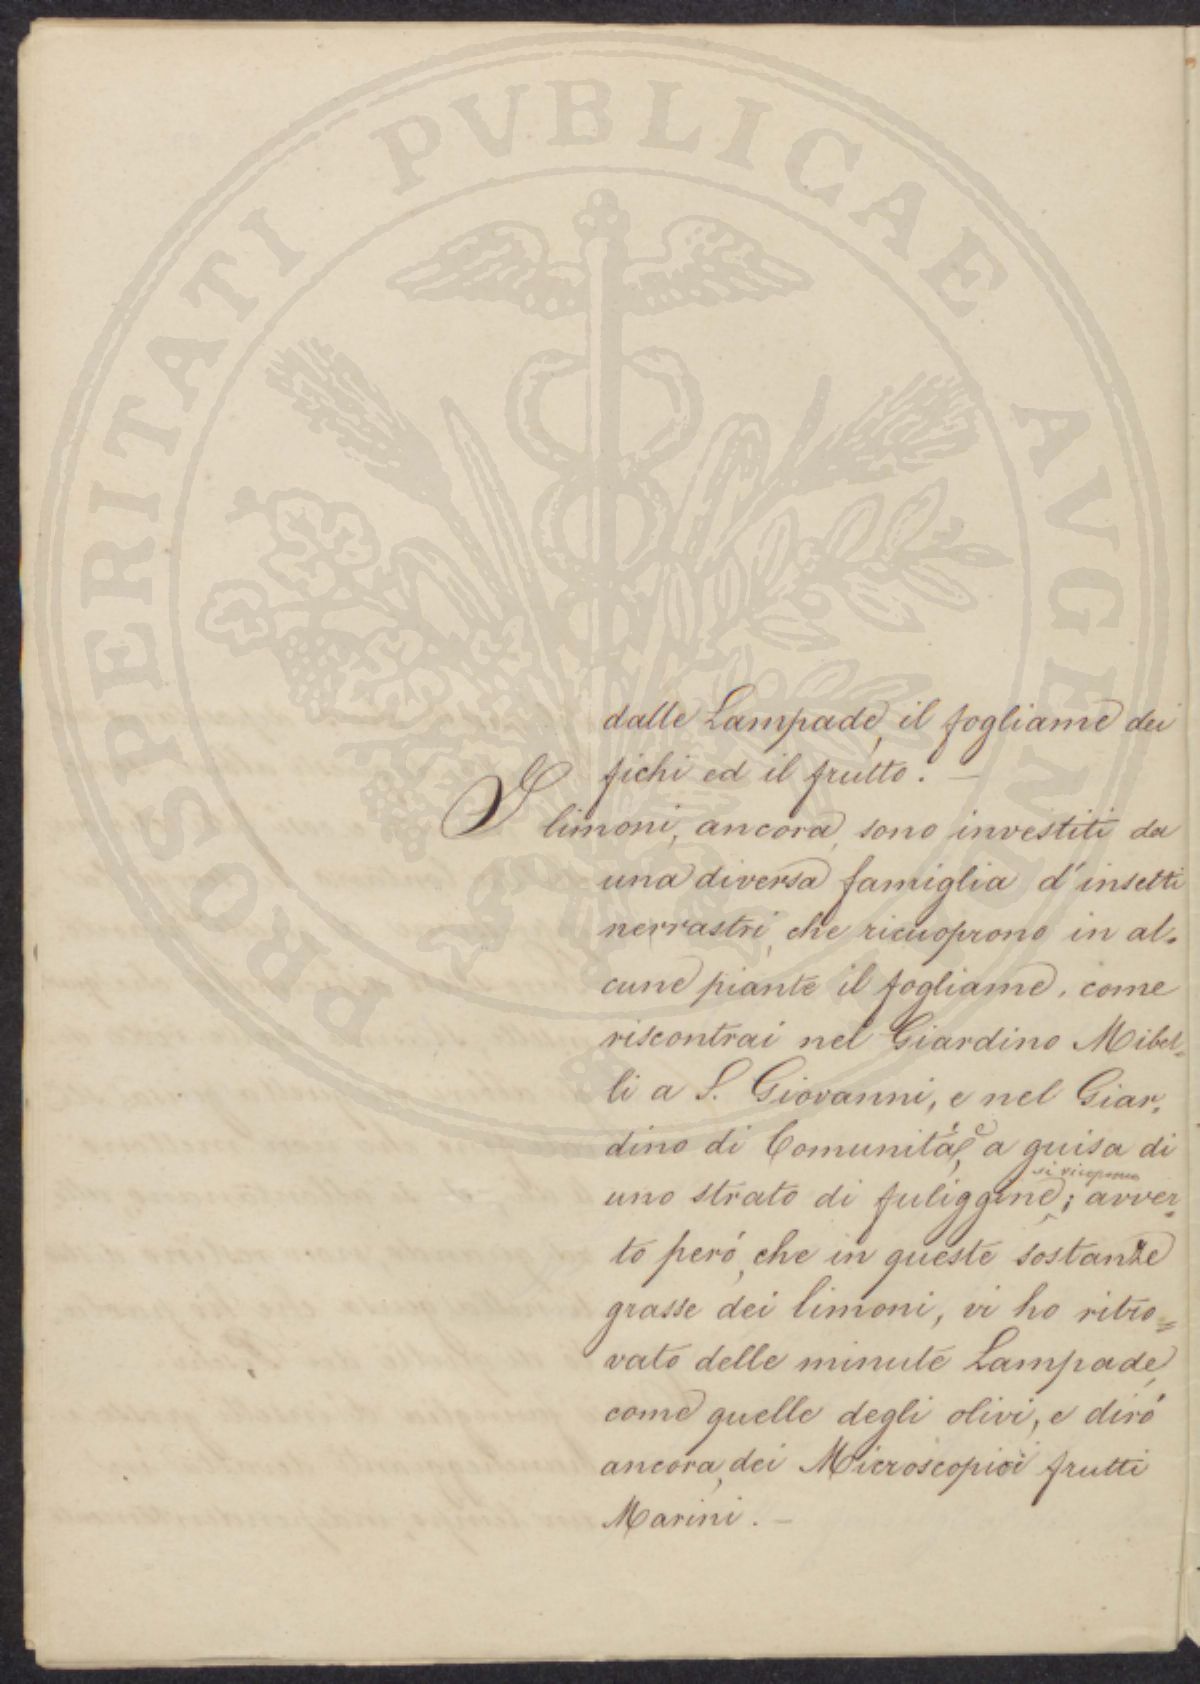 PROSPERITATI PVBLICAE AVGENDAE
dalle Lampade, il fogliame dei
fichi ed il frutto. —
I limoni, ancora, sono investiti da
una diversa famiglia d'insetti
nerrastri, che ricuoprono in al-
cune piante il fogliame, come
riscontrai nel Giardino Mibel-
li a S. Giovanni, e nel Giar-
dino di Comunità, e a guisa di
si ricoprono
uno strato di fuliggine; avver-
to peró, che in queste sostanze
grasse dei limoni, vi ho ritro=
vato delle minute Lampade,
come quelle degli olivi, e diró
ancora, dei Microscopici frutti
Marini. —